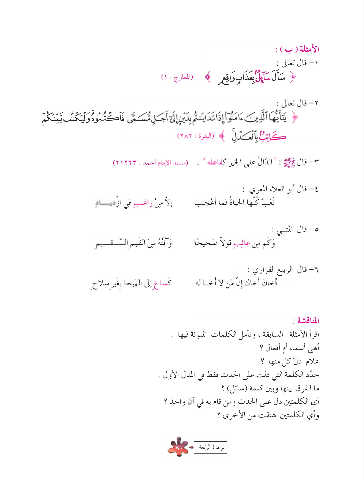 الأمثلة ( ب ) :
١- قال تعالى :
﴿ سَأَلَ سَآئِلٌۢ بِعَذَابٖ وَاقِعٖ ﴾ (المعارج : ١)
٢- قال تعالى :
﴿ يَٰٓأَيُّهَا ٱلَّذِينَ ءَامَنُوٓاْ إِذَا تَدَايَنتُم بِدَيۡنٍ إِلَىٰٓ أَجَلٖ مُّسَمّٗى فَٱكۡتُبُوهُۚ وَلۡيَكۡتُب بَّيۡنَكُمۡ
كَاتِبُۢ بِٱلۡعَدۡلِ ﴾ (البقرة : ٢٨٢)
٣- قال ﷺ : " الدَّالُّ على الخير كفاعله " . (مسند الإمام أحمد :
٤- قال أبو العلاء المعري :
تَعَبٌ كُلُّها الحياةُ فما أعْجَبُ إلاّ مِنْ راغبٍ في ازْديـــادِ
٥- قال المتنبي :
وَكَمْ مِن عائِبٍ قولاً صَحيحًا وَآفَتُهُ مِنَ الفَهمِ السَّــقــيمِ
٦- قال
أخاك أخاك إنَّ مَن لا أخـا له كساعٍ إلى الهيجا بغير سلاح
المناقشة
اقرأ الأمثلة السابقة ، وتأمل الكلمات الملونة فيها .
أهي أسماء أم أفعال ؟
علام دلّ كل منها ؟
حدّد الكلمة التي دلت على الحدث فقط في المثال الأول .
ما الفرق بينها وبين كلمة (سائل) ؟
أي الكلمتين دل على الحدث ومن قام به في آن واحد ؟
وأي الكلمتين اشتقت من الأخرى ؟